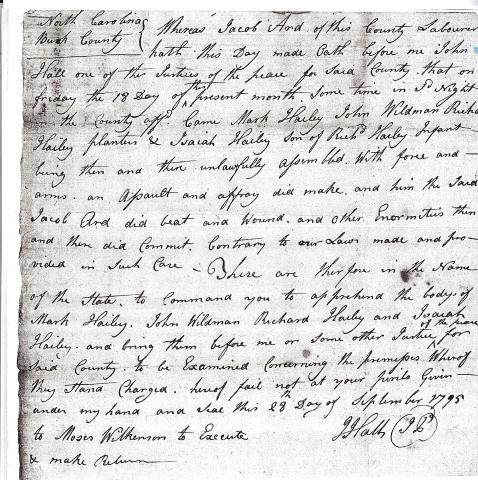 North Carolina
Burk County
Whereas Jacob Ard of this County Labourer
hath this Day made Oath before me John
Hall one of the Justices of the peace for Said County. that on
friday the 18 Day of this present month Some time in Sd Night
in the County affd. Came Mark Hailey John Wildman Richd
Hailey planters & Isaiah Hailey Son of Richd Hailey Infant
being then and there unlawfully assembled. With force and
arms. an Assault and affray did make. and him the Said
Jacob Ard did beat and Wound. and other Enormities then
and there did Commit. Contrary to our Laws made and pro-
vided in Such Case - These are therfore in the Name
of the State. to Command you to apprehend the bodys of
Mark Hailey. John Wildman Richard Hailey and Isaiah
Hailey. and bring them before me or Some other Justice of the peace for
Said County. to be Examined Concerning the premises Wherof
they Stand Charged. herof fail not at your perils Given
under my hand and Seal this 28th Day of September 1795
to Moses Wilkenson to Execute
J Hall JP
& make Return